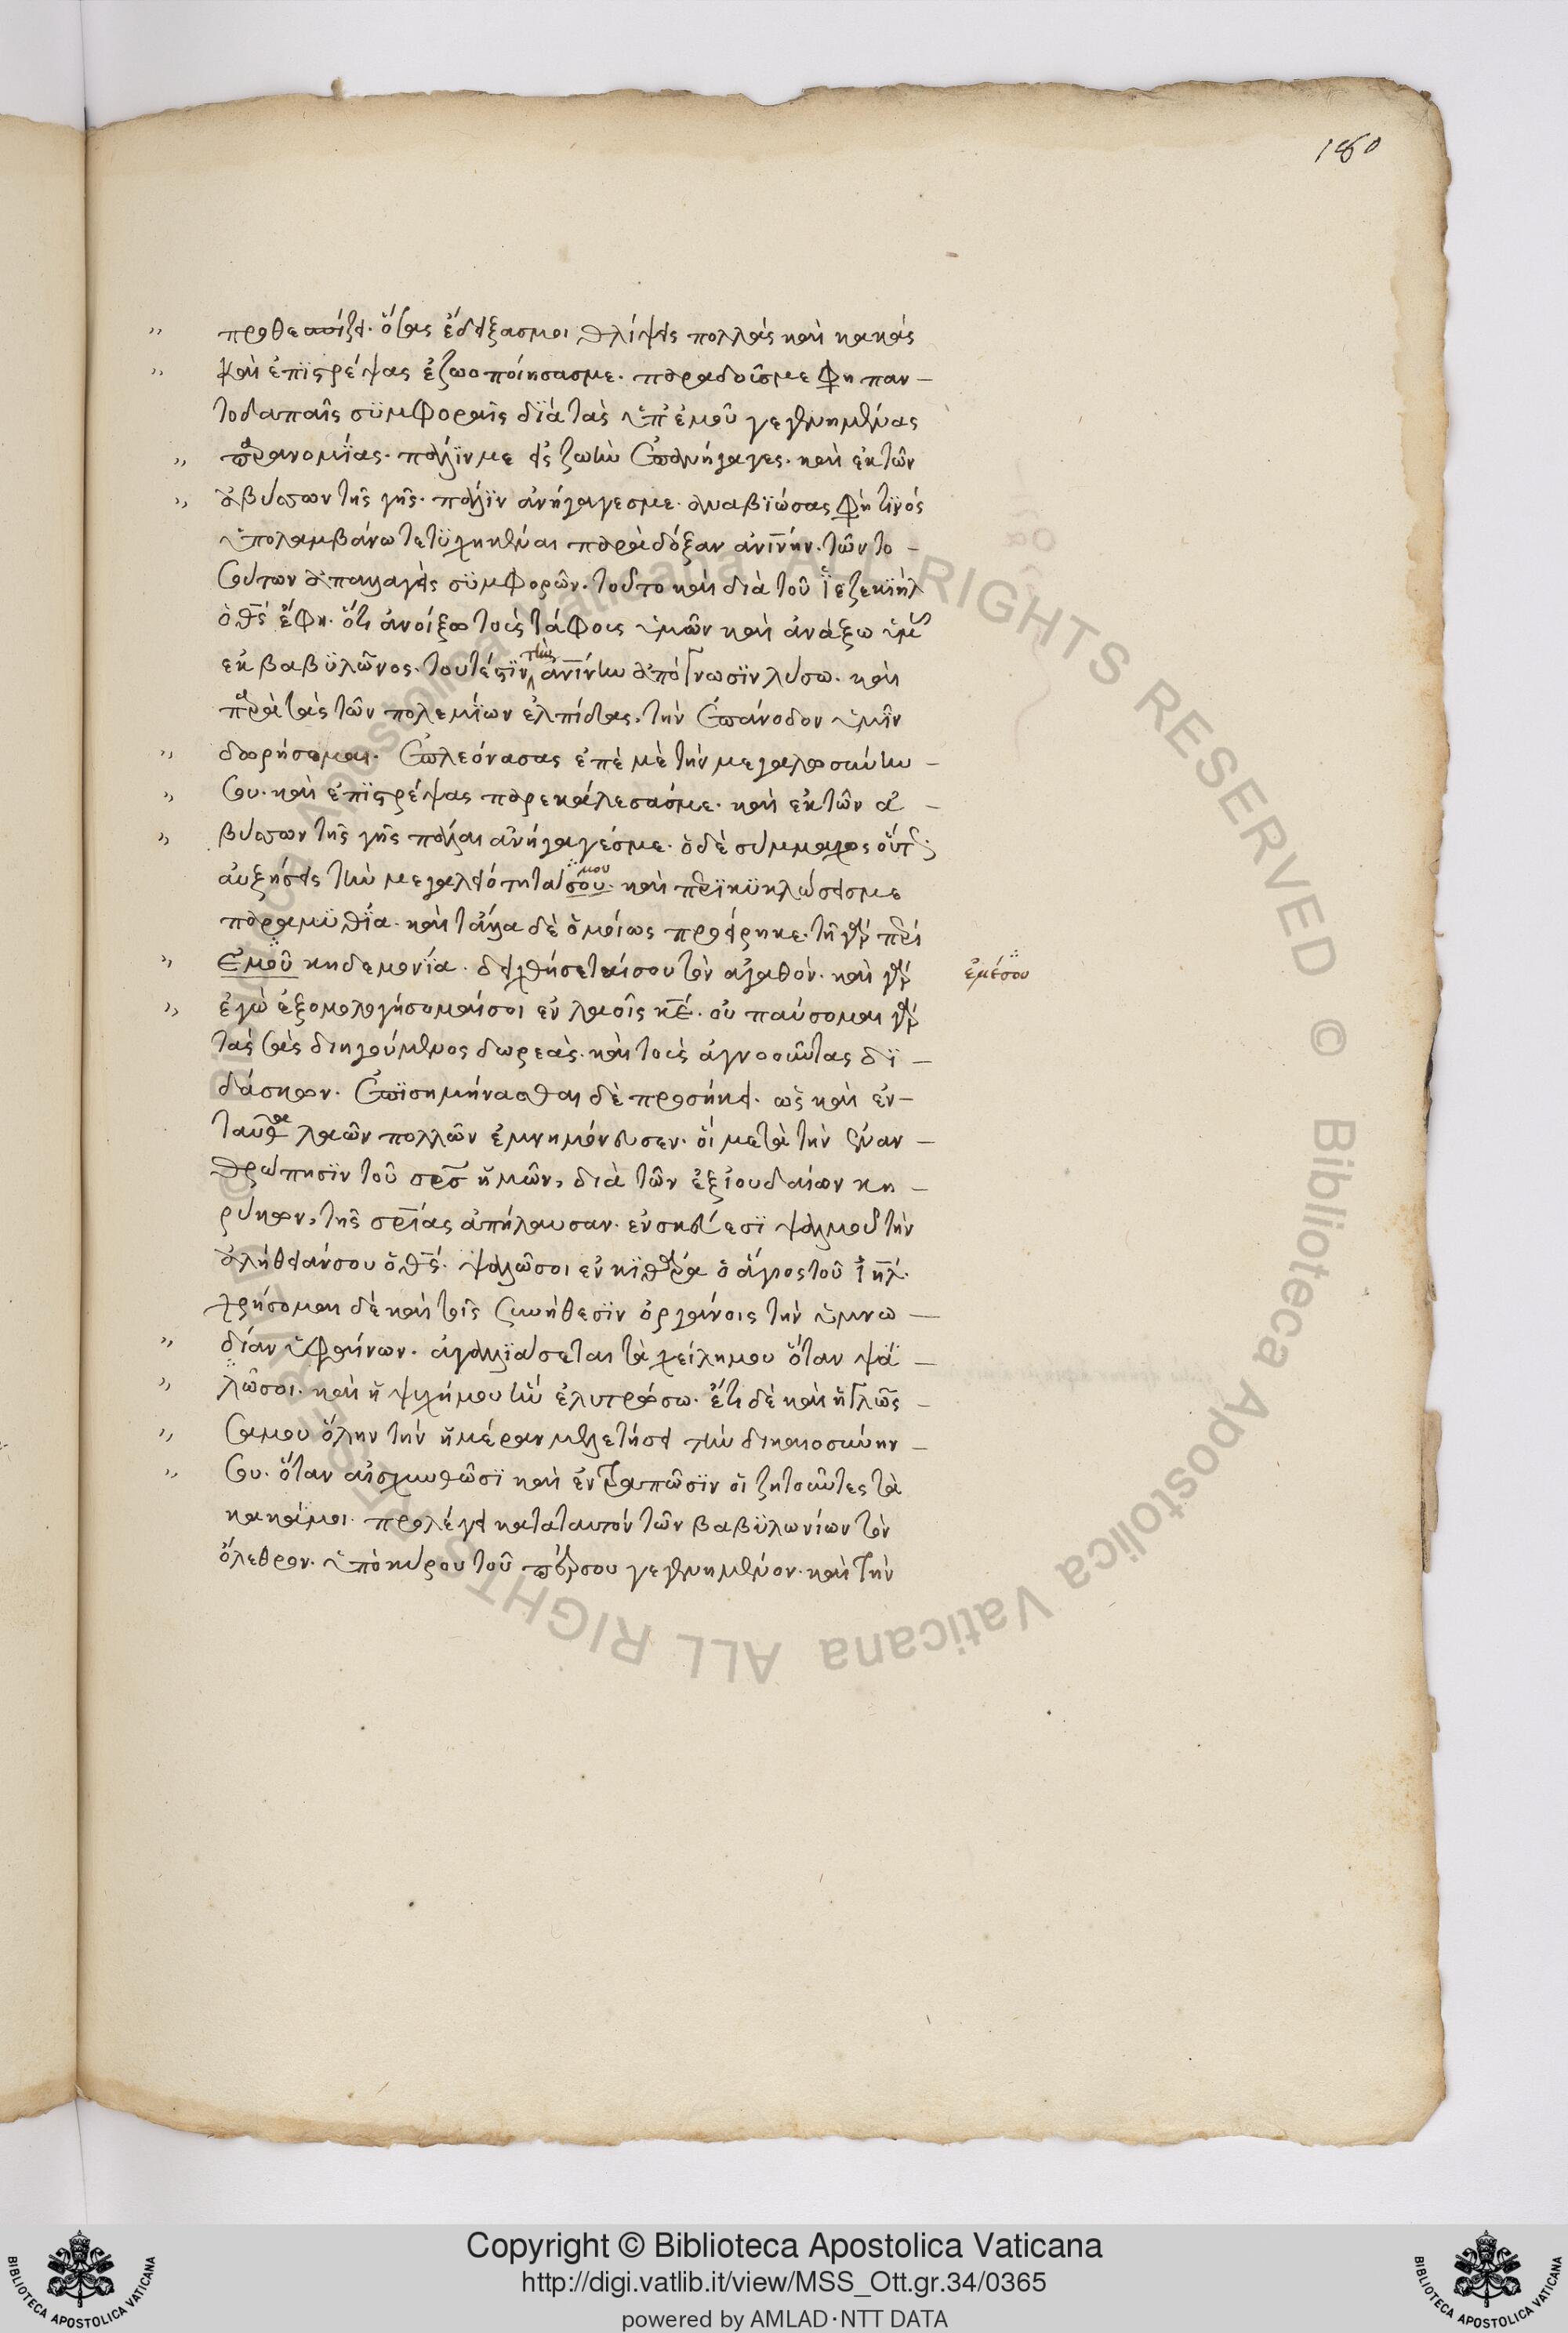 180
προθεσπίζει. ὅσας ἔδειξας μοι θλίψεις πολλὰς καὶ κακὰς
καὶ ἐπϊστρέψας ἐζωοποίησας με. παραδοὺς με φη παν–
τοδαπαῖς σϋμφοραῖς δϊὰ τὰς ὑπ' ἐμοῦ γεγενημένας
παρανομΐας. πάλϊν με εἰς ζωὴν ἐπανήγαγες. καὶ ἐκ τῶν
ἀβύσσων τῆς γῆς. πάλϊν ἀνήγαγες με. ἀναβϊώσας φή τϊνός
ὑπολαμβάνω τετϋχηκέναι παρὰ δόξαν ἀνῑνην. τῶν το–
σούτων ἀπαλλαγεὶς σϋμφορῶν. τοῦτο καὶ διὰ τοῦ ϊεζεκϊὴλ
ὁ θς ἔφη. ὅτι ἀνοίξω τοὺς τάφους ὑμῶν καὶ ἀνάξω ὑμᾶς
ἐκ βαβϋλῶνος. τουτέστϊν τὴν ἀνῑνην ἀπόγνωσϊν λύσω. καὶ
παρὰ τὰς τῶν πολεμΐων ἐλπίδας, τὴν ἐπάνοδον ὑμῖν
δωρήσομαι. ἐπλεόνασας ἐπ' ἐμὲ τὴν μεγαλωσύνην –
σου. καὶ ἐπϊστρέψας παρεκάλεσάς με. καὶ ἐκ τῶν ἀ –
βύσσων τῆς γῆς πάλαι ἀνήγαγές με. ὁ δὲ σύμμαχος οὕτως
αὐξήσεις τὴν μεγαλειότητα σου μου. καὶ περϊκϋκλώσεις με
παραμϋθΐα. καὶ τἄλλα δὲ ὁμοίως προείρηκε. τῇ γὰρ περὶ
ἐμοῦ κηδεμονΐα. δειχθήσεταί σου τὸν ἀγαθὸν. καὶ γὰρ
ἐμέ σου
ἐγὼ ἐξομολογήσομαί σοι ἐν λαοῖς κε. οὐ παύσομαι γὰρ
τὰς σὰς διηγούμενος δωρεὰς. καὶ τοὺς ἀγνοοῦντας δϊ –
δάσκων. ἐπϊσημήνασθαι δὲ προσήκει. ὡς καὶ ἐν–
ταῦθα λαῶν πολλῶν ἐμνημόνευσεν. οἱ μετὰ τὴν ἐναν –
θρώπησϊν τοῦ σρς ἡμῶν, διὰ τῶν ἐξ ἰουδαίων κη –
ρύκων, τῆς σρίας ἀπήλαυσαν. ἐν σκεύεσϊ ψαλμοῦ τὴν
ἀλήθειάν σου ὁ θς. ψαλῶ σοι ἐν κϊθάρα ὁ ἅγιος τοῦ ιηλ.
χρήσομαι δὲ καὶ τοῖς συνήθεσϊν ὀργάνοις τὴν ὑμνω –
δίαν ὑφαίνων. ἀγαλλϊάσεται τὰ χείλη μου ὅταν ψα –
λῶ σοι. καὶ ἡ ψυχή μου ἣν ἐλυτρώσω. ἔτι δὲ καὶ ἡ γλῶσ –
σα μου ὅλην τὴν ἡμέραν μελετήσει τὴν δικαιοσύνην –
σου. ὅταν αἰσχυνθῶσϊ καὶ ἐντραπῶσϊν οἱ ζητοῦντες τὰ
κακά μοι. προλέγει κατὰ ταυτὸν τῶν βαβϋλωνίων τὸν
ὄλεθρον. ὑπὸ κύρου τοῦ πέρσου γεγενημένον. καὶ τὴν
Copyright © Biblioteca Apostolica Vaticana
http://digi.vatlib.it/view/MSS_Ott.gr.34/0365
powered by AMLAD·NTT DATA